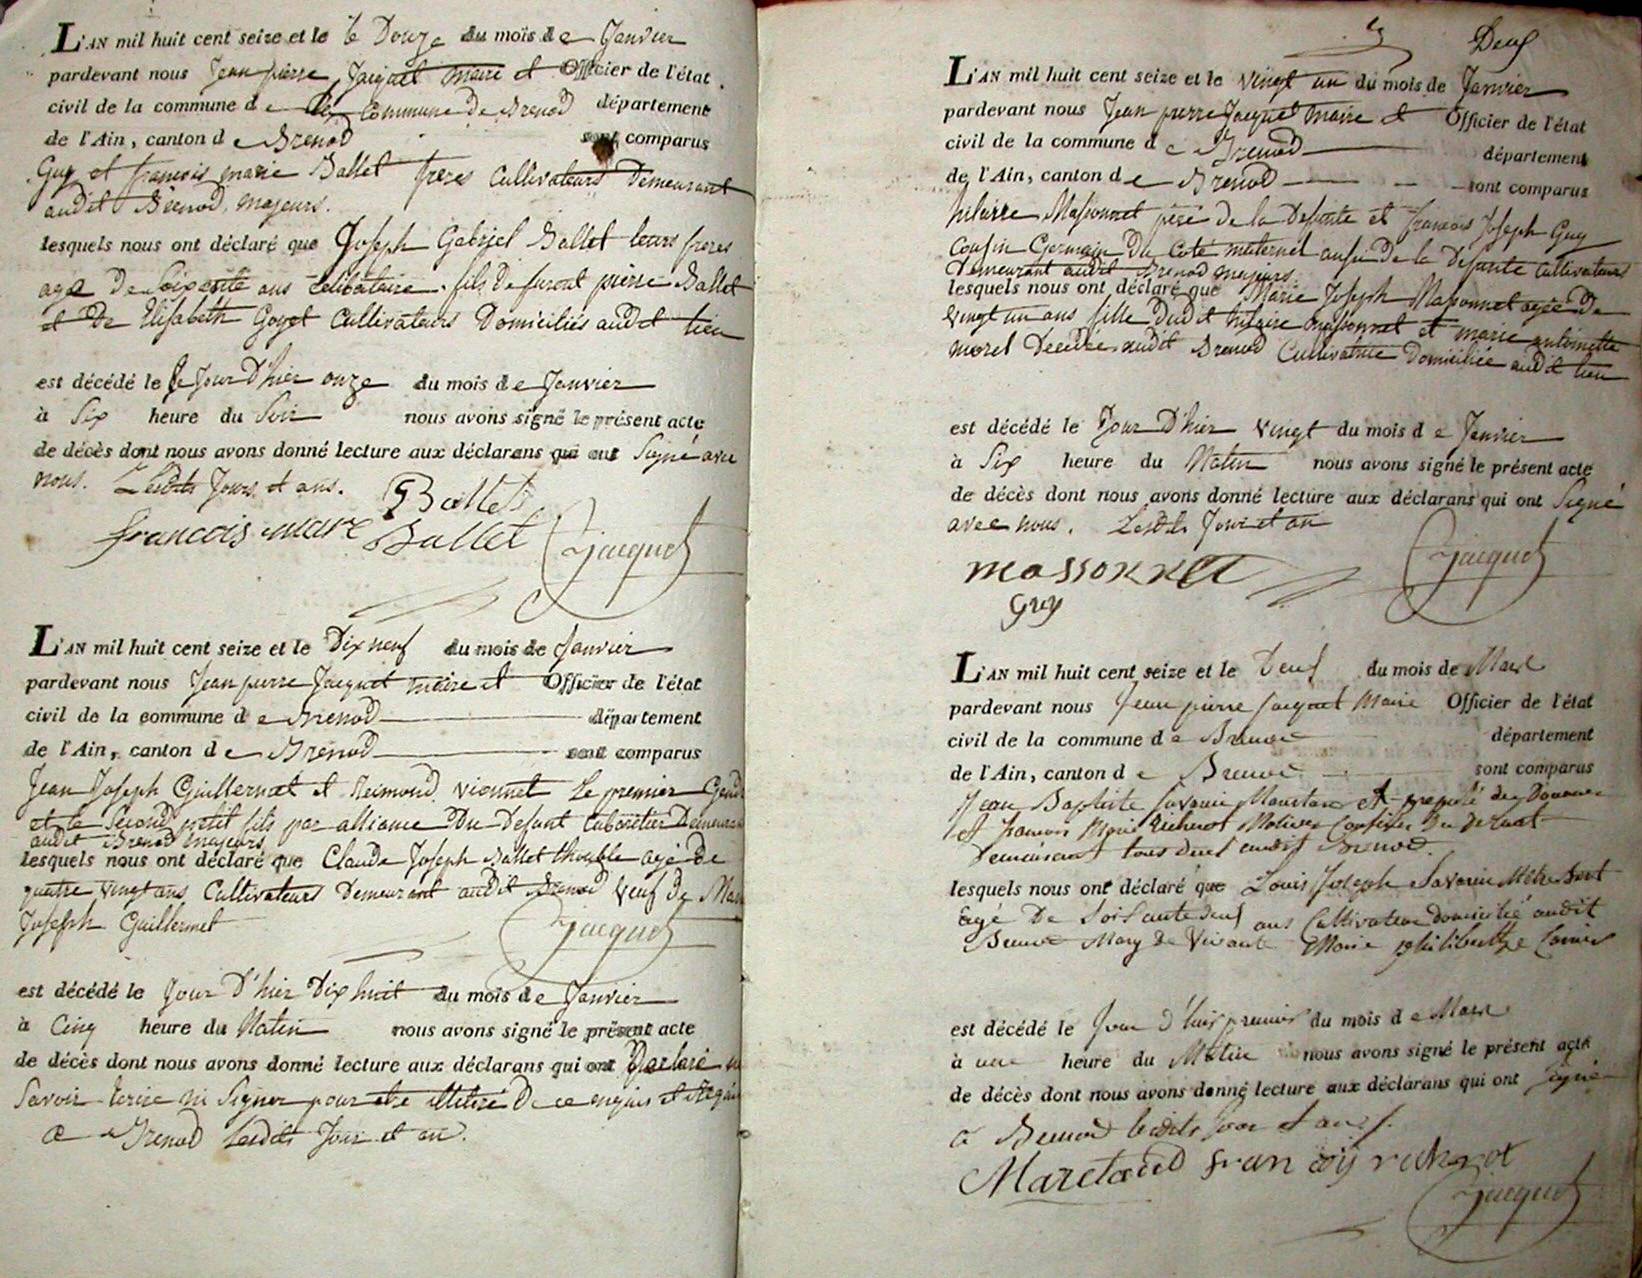 L'AN mil huit cent seize et le le Douze du mois de Janvier
pardevant nous Jean pierre Jacquet maire et Officier de l'état
civil de la commune de la Commune de Brenod département
de l'Ain, canton de Brenod sont comparus
Guy et francois marie Ballet freres Cultivateurs Demeurant
audit Brenod, majeurs.
lesquels nous ont déclaré que Joseph Gabriel Ballet leurs freres
agé De Soixante ans Celibataire. fils De furent pierre Ballet
et De Elisabeth Goyet Cultivateurs Domiciliés audit lieu
est décédé le Le Jour D'hier onze du mois de Janvier
à Six heure du Soir nous avons signé le présent acte
de décès dont nous avons donné lecture aux déclarans qui ont Signé avec
nous. Lesdits Jours et ans. GBallet
francois marie Ballet Jacquet
L'AN mil huit cent seize et le Dix neuf du mois de Janvier
pardevant nous Jean pierre Jacquet maire et Officier de l'état
civil de la commune de Brenod département
de l'Ain, canton de Brenod sont comparus
Jean Joseph Guillermet et Reimond Vionnet Le premier
et le Second petit fils par alliance Du Defunt
audit Brenod majeurs
lesquels nous ont déclaré que Claude Joseph Ballet agé de
quatre vingt ans Cultivateurs Demeurant audit Brenod Veuf de
Joseph Guillermet Jacquet
est décédé le Jour D'hier Dix huit du mois de Janvier
à Cinq heure du Matin nous avons signé le présent acte
de décès dont nous avons donné lecture aux déclarans qui ont Declaré
Savoir Ecrire ni Signer pour etre illitéré De ce enquis et Requis
a Brenod Lesdits Jour et an.
Deux
L'AN mil huit cent seize et le vingt un du mois de Janvier
pardevant nous Jean pierre Jacquet maire et Officier de l'état
civil de la commune de Brenod département
de l'Ain, canton de Brenod sont comparus
hilaire Massonnet père de la Defunte et francois Joseph Guy
Cousin Germain Du Coté maternel aussi De la Defunte Cultivateurs
Demeurant audit Brenod majeurs
lesquels nous ont déclaré que Marie Joseph Massonnet agée De
vingt un ans fille Dudit hilaire Massonnet et marie antoinette
morel Decedée audit Brenod Cultivatrice Domiciliée audit lieu
est décédé le Jour D'hier vingt du mois de Janvier
à Six heure du Matin nous avons signé le présent acte
de décès dont nous avons donné lecture aux déclarans qui ont Signé
avec nous. Lesdits Jour et an
massonnet Jacquet
Guy
L'AN mil huit cent seize et le Deux du mois de Mars
pardevant nous Jean pierre Jacquet Maire Officier de l'état
civil de la commune de Brenod département
de l'Ain, canton de Brenod sont comparus
Jean Baptiste Savarin preposé des Douanes
et francois Marie Richerot Du Defunt
Demeurant tous deux audit Brenod.
lesquels nous ont déclaré que Louis Joseph Savarin
agé De Soixante deux ans Cultivateur domicilié audit
Brenod Mary De Vivante Marie philiberthe
est décédé le Jour d'hier premier du mois de Mars
à une heure du Matin nous avons signé le présent acte
de décès dont nous avons donné lecture aux déclarans qui ont Signé
a Brenod lesdits Jour et an
francois richerot
Jacquet